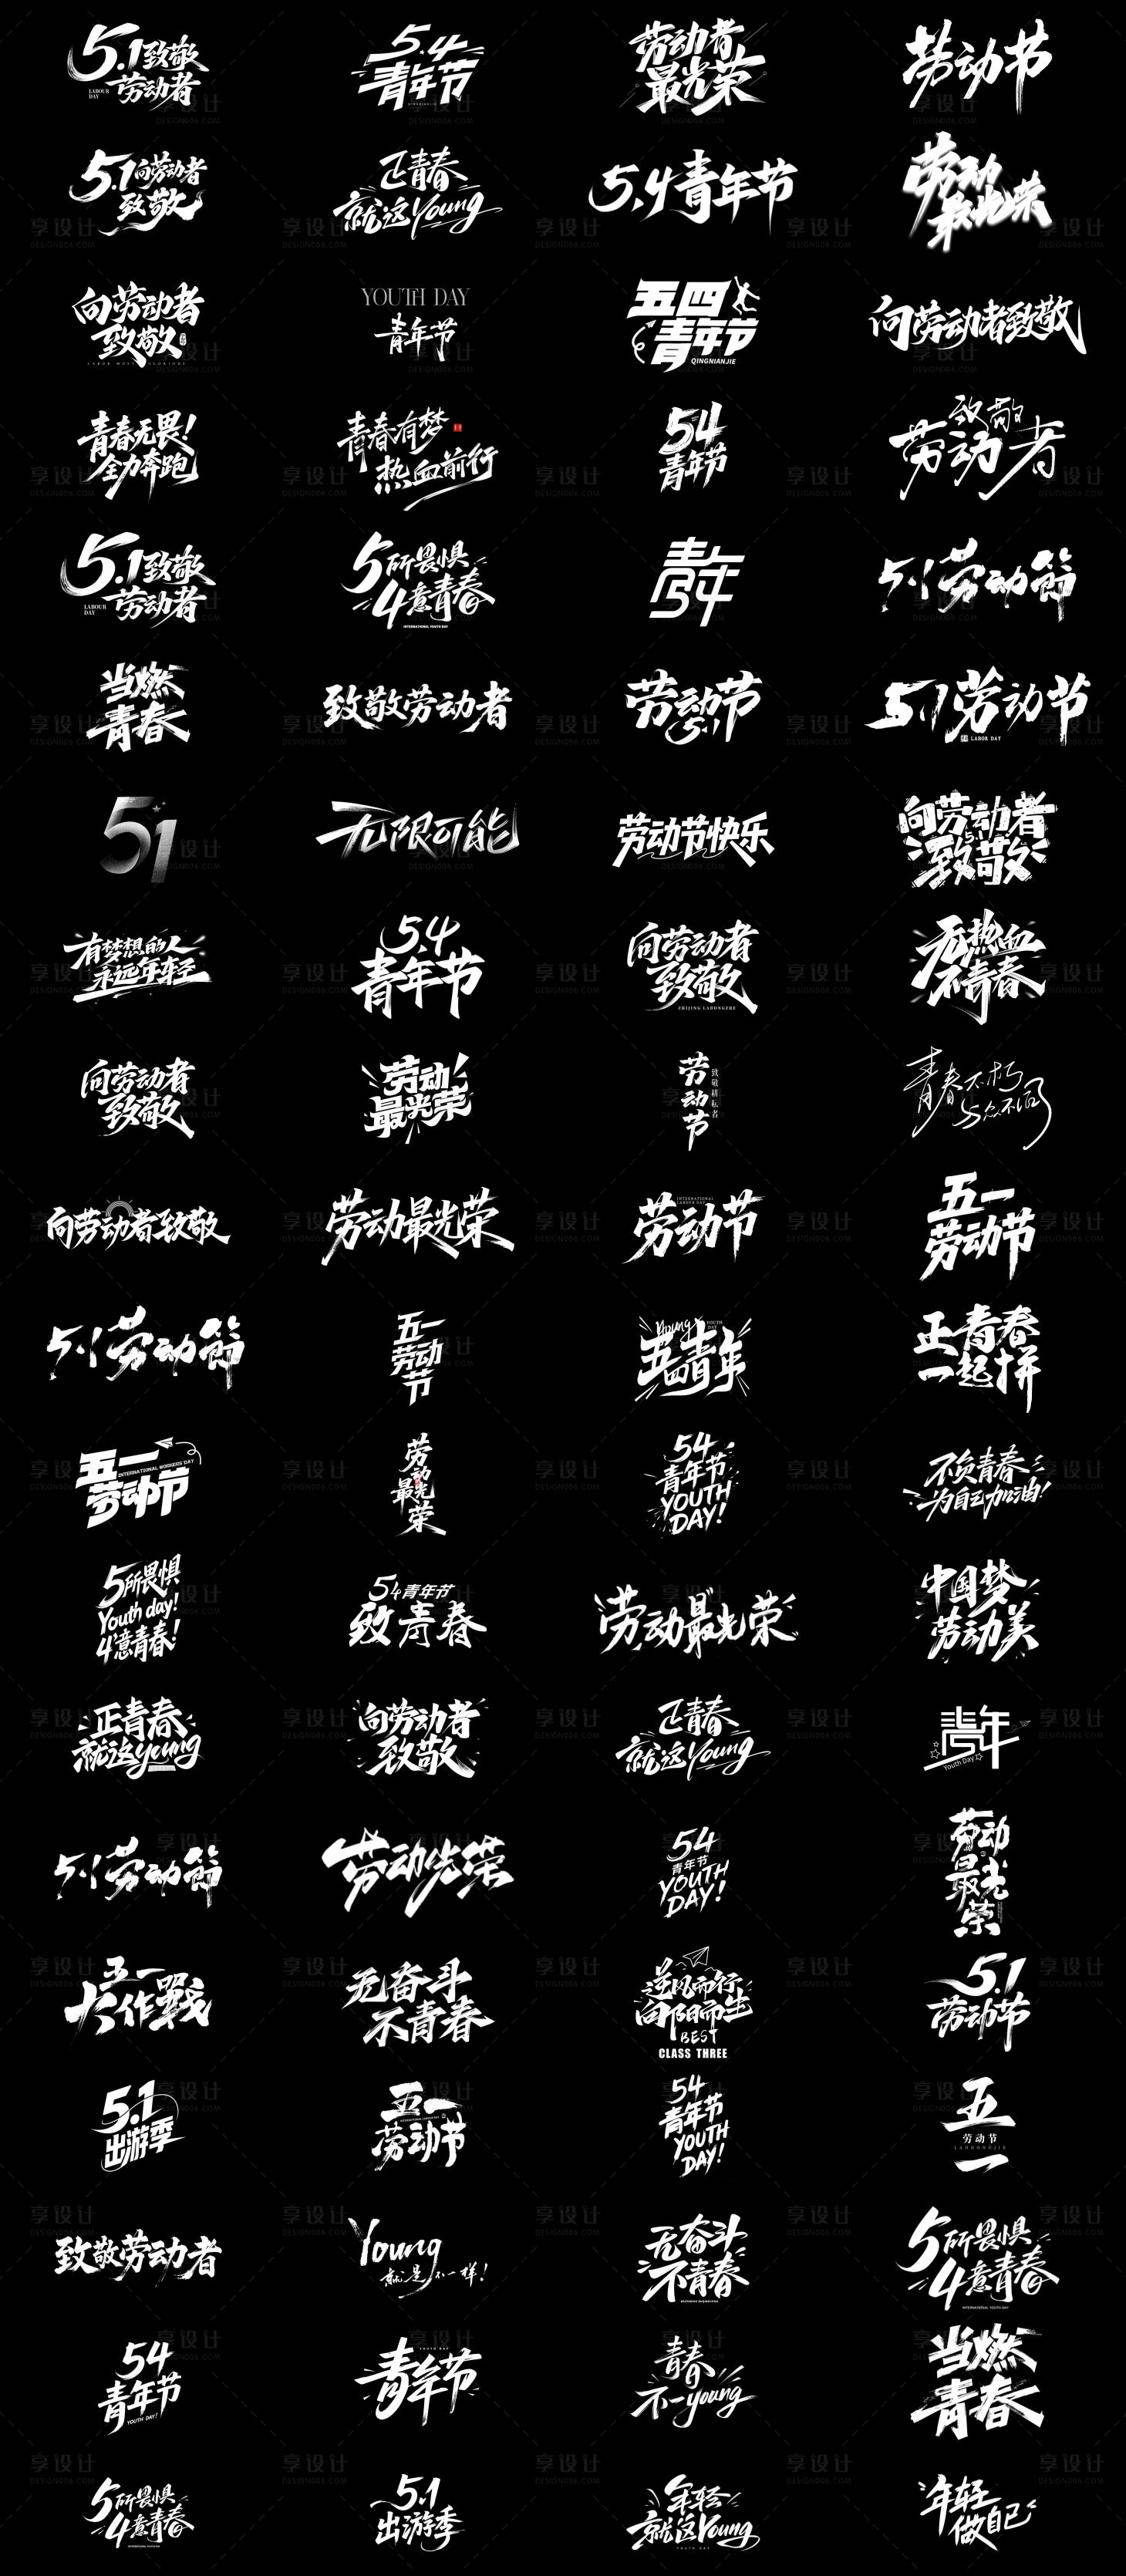 5.1致敬
LABOUR DAY
劳动者
5.4
青年节
QINGNIANJIE
劳动者
最光荣
劳动节
5.1向劳动者
致敬
正青春
就这young
5.4青年节
劳动
最光荣
向劳动者
致敬
YOUTH DAY
青年节
五四
青年节
QINGNIANJIE
向劳动者致敬
青春无畏!
全力奔跑
青春有梦
热血前行
54
青年节
致敬
劳动者
5.1致敬
LABOUR DAY
劳动者
5所畏惧
4意青春
INTERNATIONAL YOUTH DAY
青年
54
5·1劳动節
当燃
青春
致敬劳动者
劳动节
5.1
5.1劳动节
LABOR DAY
51
无限可能
劳动节快乐
向劳动者
5.1
致敬
有梦想的人
永远年轻
5.4
青年节
向劳动者
致敬
ZHIJING LAODONGZHE
无热血
不青春
向劳动者
致敬
劳动
最光荣
劳动节
致敬耕耘者
青春不朽
与众不同
向劳动者致敬
劳动最光荣
INTERNATIONAL
LABOUR DAY
劳动节
五一
劳动节
5·1劳动節
五一
劳动
节
Young
YOUTH DAY
五四青年
正青春
一起拼
五一
INTERNATIONAL WORKERS'DAY
劳动节
劳动
最光
荣
54
青年节
YOUTH
DAY!
不负青春
为自己加油!
5所畏惧
Youth day!
4意青春!
54青年节
致青春
劳动最光荣
中国梦
劳动美
正青春
就这young
向劳动者
致敬
正青春
就这young
青年
Youth Day
5·1劳动節
劳动光荣
54
青年节
YOUTH
DAY!
劳动
最光
荣
五一
大作戰
无奋斗
不青春
逆风而行
向阳而生
BEST
CLASS THREE
5.1
劳动节
5.1
出游季
五一
劳动节
54
青年节
YOUTH
DAY!
五
劳动节
LAODONGJIE
一
致敬劳动者
Young
就是不一样!
无奋斗
不青春
5所畏惧
4意青春
INTERNATIONAL YOUTH DAY
54
青年节
YOUTH DAY!
YOUTH DAY
青年节
青春
不一young
当燃
青春
5所畏惧
4意青春
INTERNATIONAL YOUTH DAY
5.1
出游季
年轻
就这Young
YOUTH DAY
年轻
做自己
享设计
DESIGN006.COM